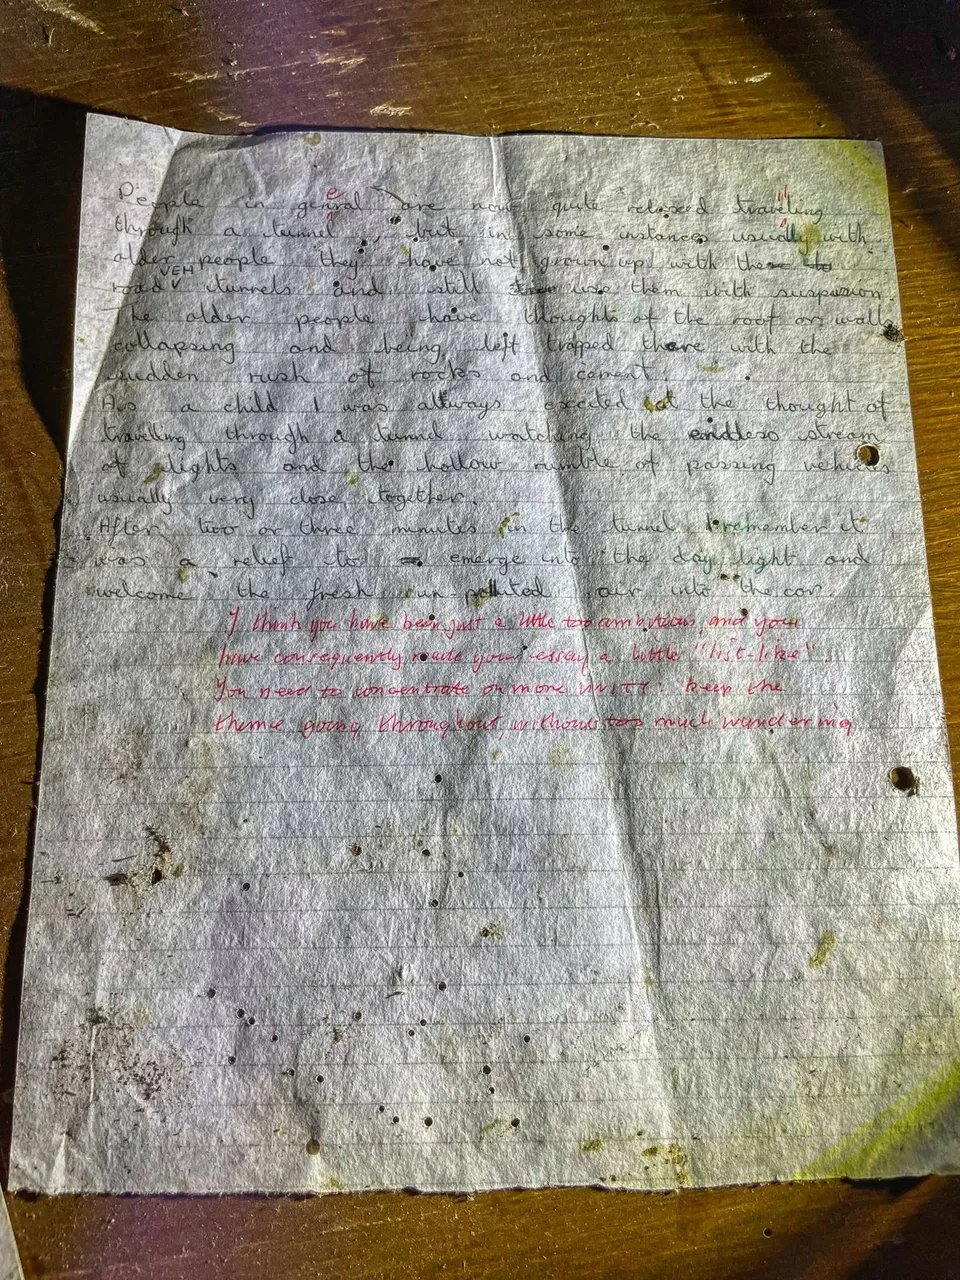 People in genral are now quite relaxed traveling
e
"
through a tunnel, but in some instances usually with
older people they have not grown up with the to
VEH
road tunnels and still use them with suspision.
The older people have thoughts of the roof or walls
collapsing and being left trapped there with the
sudden rush of rocks and cement.
As a child I was allways execited at the thought of
travelling through a tunnel watching the endless stream
of lights and the hollow rumble of passing vehicles
usually very close together.
After two or three minutes in the tunnel I remember it
was a relief to emerge into the day light and
welcome the fresh un-polluted air into the car.
I think you have been just a little too ambitious, and you
have consequently made your essay a little "list-like".
You need to concentrate on more UNITY: keep the
theme going throughout, without too much wandering